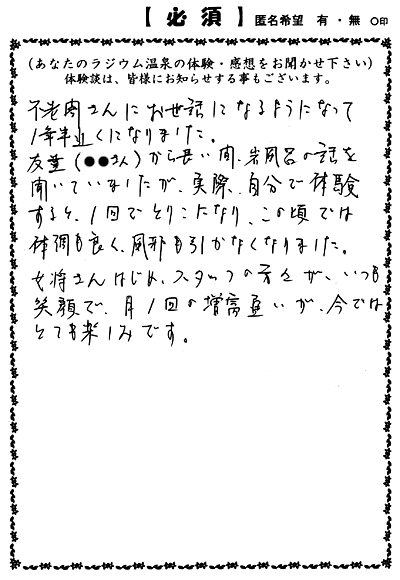 【必須】 匿名希望 有・無 ○印
(あなたのラジウム温泉の体験・感想をお聞かせ下さい)
体験談は、皆様にお知らせする事もございます。
不老閣さんにお世話になるようになって
1年半近くになりました。
友葉(●●さん)から長い間、岩風呂の話を
聞いていましたが、実際、自分で体験
すると、1回でとりこになり、この頃では
体調も良く、風邪も引かなくなりました。
女将さんはじめ、スタッフの方々が、いつも
笑顔で、月1回の増富通いが、今では
とても楽しみです。